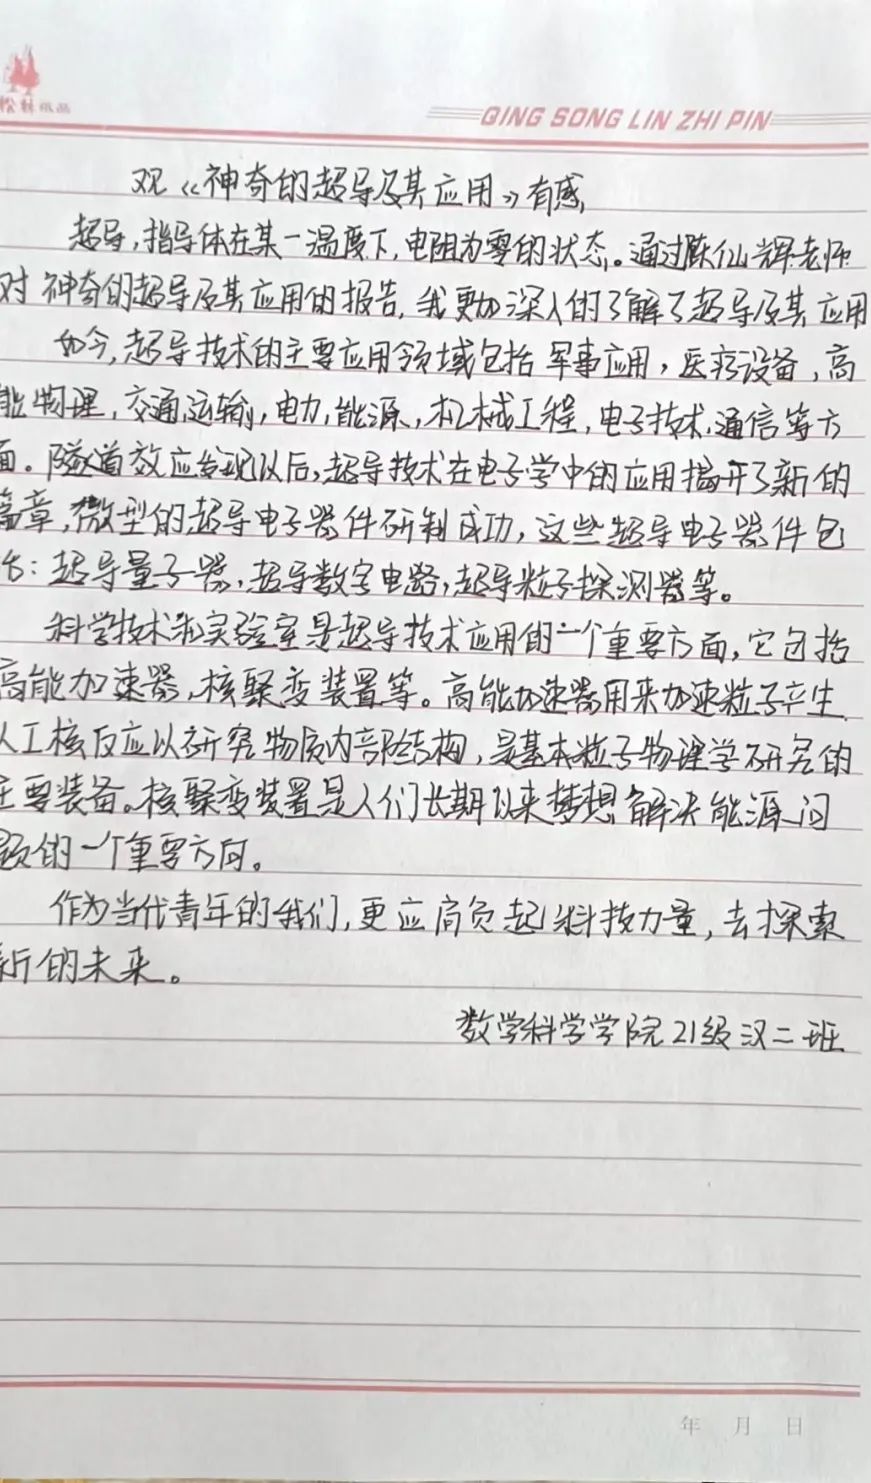 松林纸品
QING SONG LIN ZHI PIN
观《神奇的超导及其应用》有感
超导,指导体在某一温度下,电阻为零的状态。通过陈仙辉老师
对神奇的超导及其应用的报告,我更加深入的了解了超导及其应用
如今,超导技术的主要应用领域包括军事应用,医疗设备,高
能物理,交通运输,电力,能源,机械工程,电子技术,通信等方
面。隧道效应发现以后,超导技术在电子学中的应用揭开了新的
篇章,微型的超导电子器件研制成功,这些超导电子器件包
括:超导量子器,超导数字电路,超导粒子探测器等。
科学技术和实验室是超导技术应用的一个重要方面,它包括
高能加速器,核聚变装置等。高能加速器用来加速粒子产生
人工核反应以研究物质内部结构,是基本粒子物理学研究的
主要装备。核聚变装置是人们长期以来梦想解决能源问
题的一个重要方向。
作为当代青年的我们,更应肩负起科技力量,去探索
新的未来。
数学科学学院21级汉二班
年 月 日